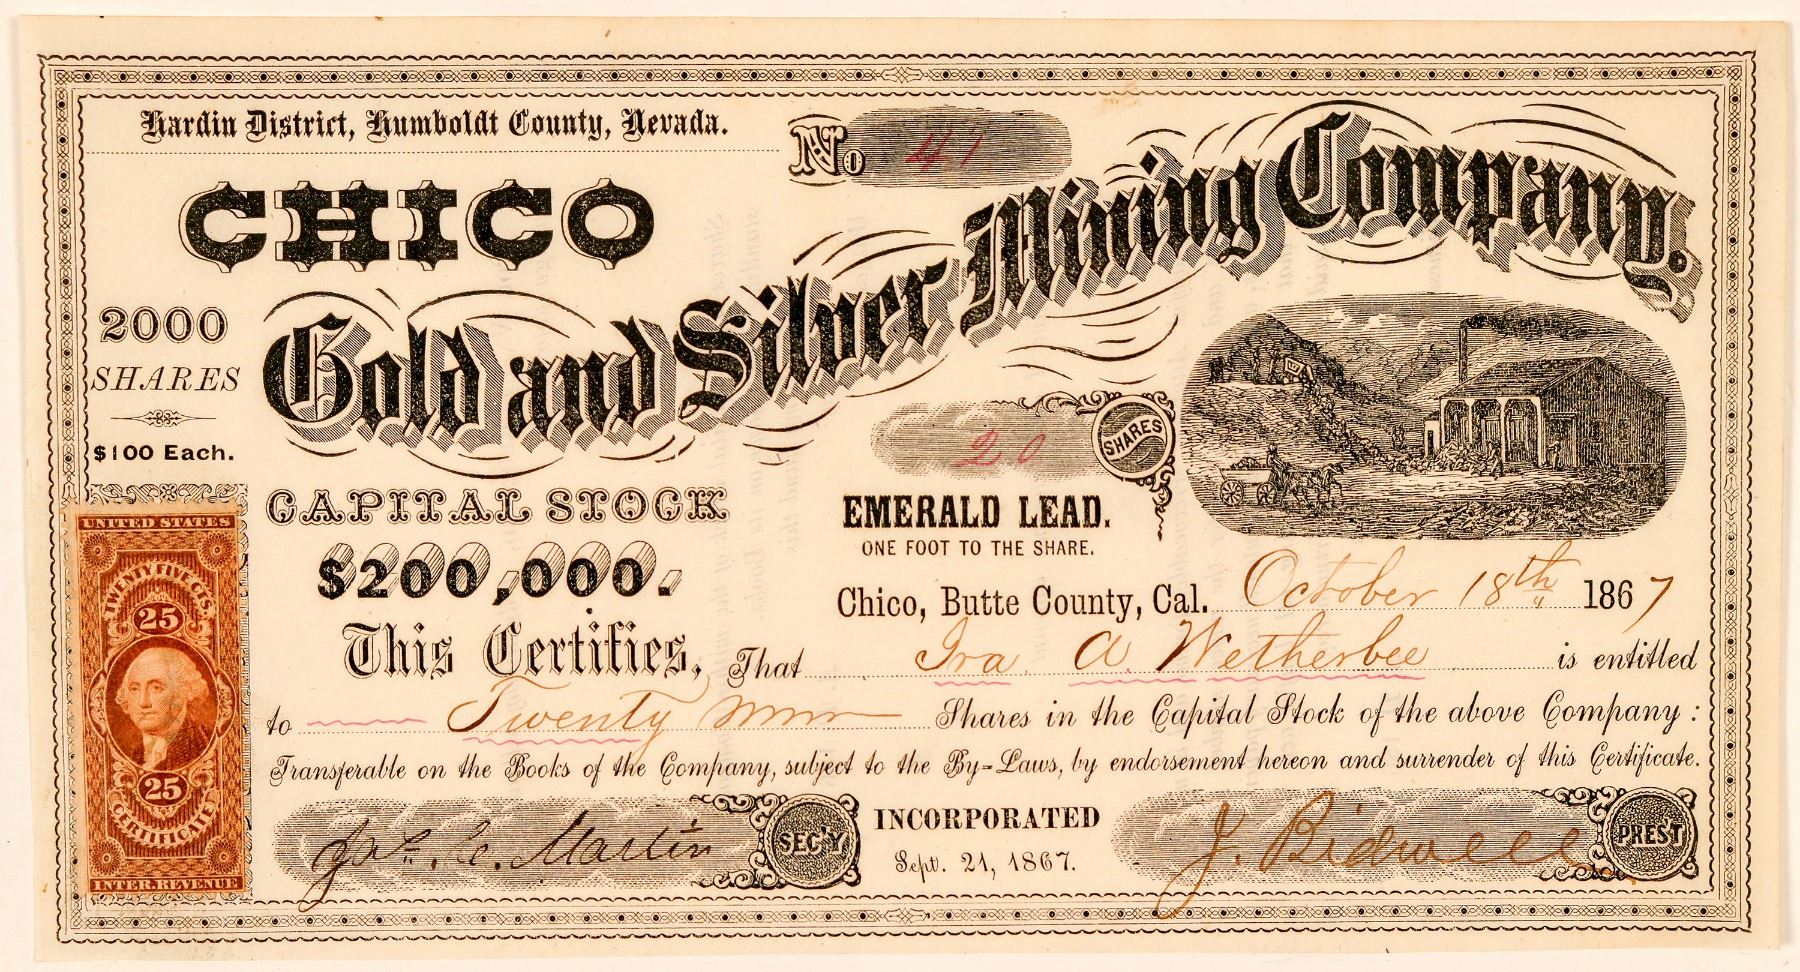 Hardin District, Humboldt County, Nevada.
No 47
CHICO
Gold and Silver Mining Company.
2000
SHARES
$100 Each.
20 SHARES
CAPITAL STOCK
$200,000.
EMERALD LEAD.
ONE FOOT TO THE SHARE.
Chico, Butte County, Cal. October 18th 1867
This Certifies, That Ira A. Wetherbee is entitled
to Twenty Shares in the Capital Stock of the above Company:
Transferable on the Books of the Company, subject to the By-Laws, by endorsement hereon and surrender of this Certificate.
Jas. C. Martin SEC'Y
INCORPORATED
Sept. 21, 1867.
J. Bidwell PREST
UNITED STATES
TWENTY FIVE CTS.
25
25
CERTIFICATE
INTER. REVENUE